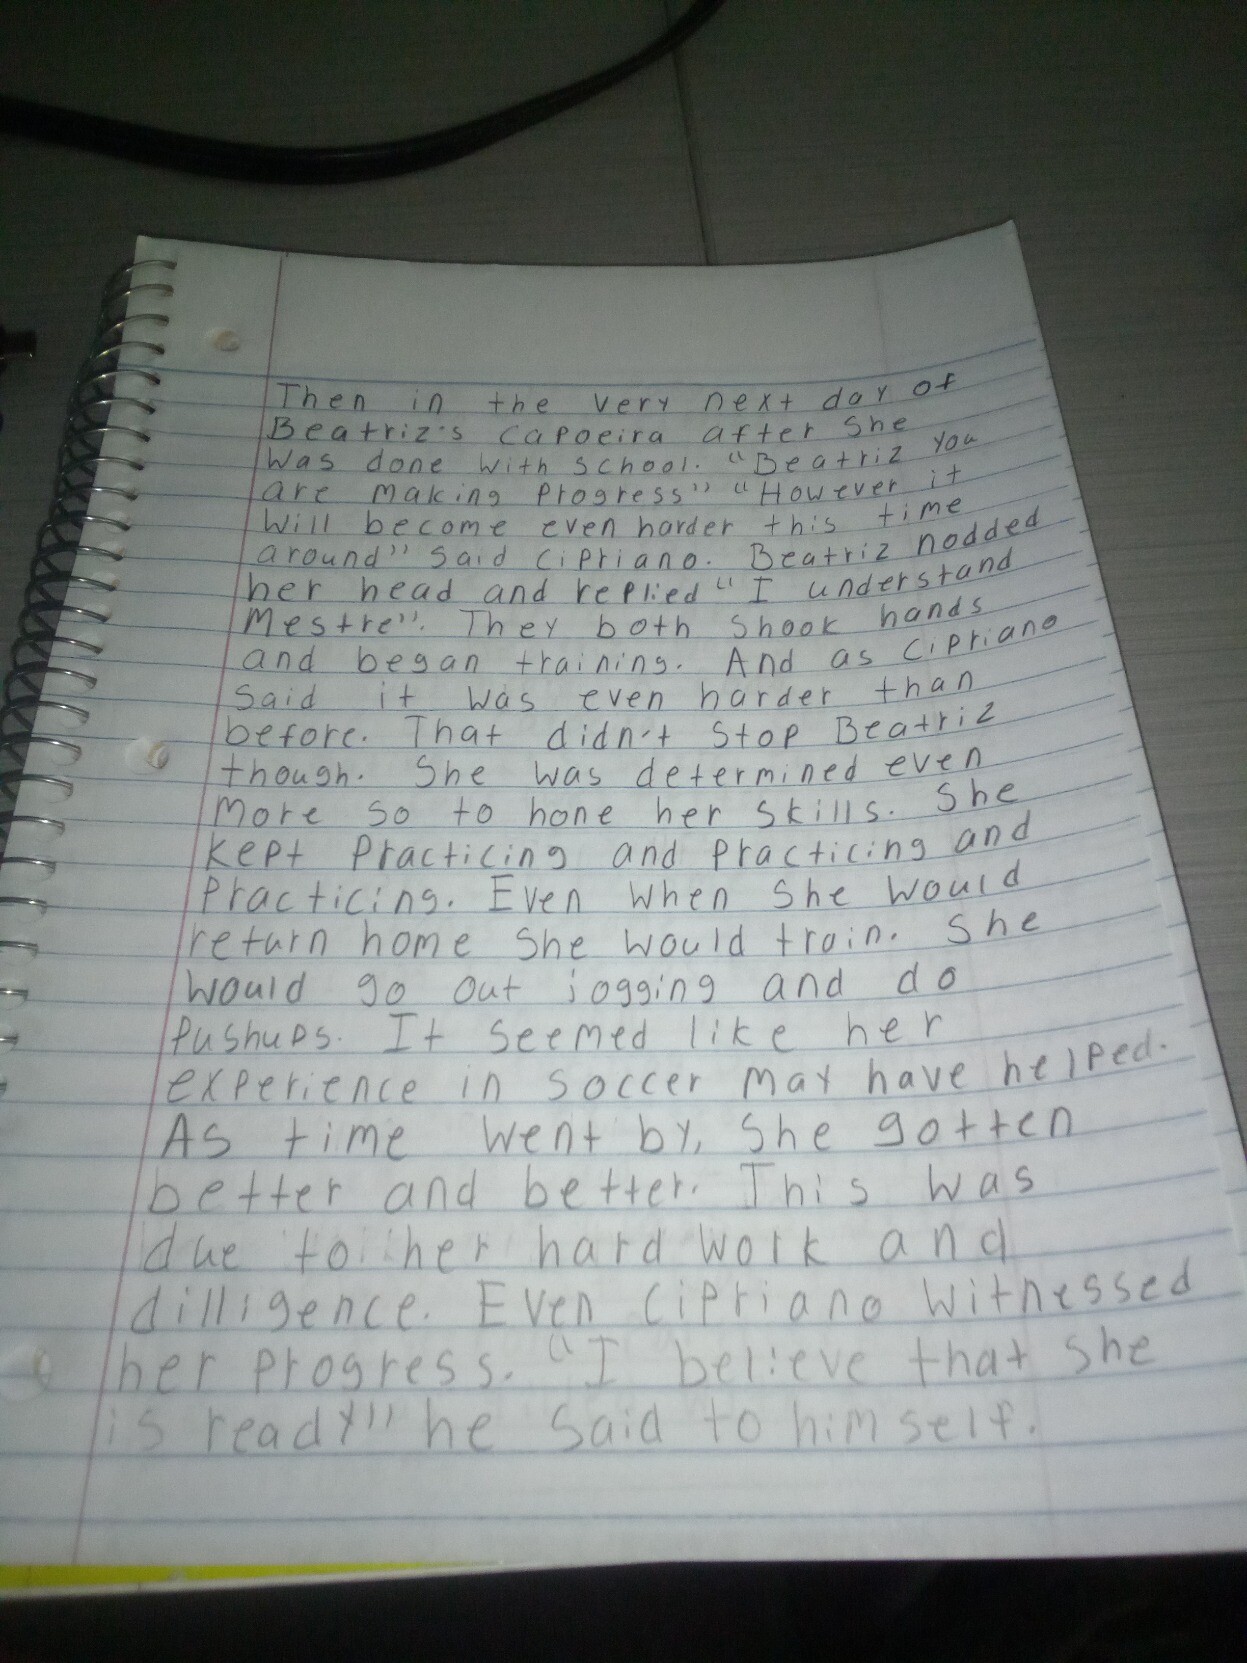 Then in the very next day of
Beatriz's Capoeira after she
was done with school. "Beatriz you
are making progress" "However it
will become even harder this time
around" said Cipriano. Beatriz nodded
her head and replied "I understand
Mestre". They both shook hands
and began training. And as Cipriano
said it was even harder than
before. That didn't stop Beatriz
though. She was determined even
more so to hone her skills. She
kept practicing and practicing and
practicing. Even when she would
return home she would train. She
would go out jogging and do
pushups. It seemed like her
experience in soccer may have helped.
As time went by, she gotten
better and better. This was
due to her hard work and
dilligence. Even Cipriano witnessed
her progress. "I believe that she
is ready" he said to himself.